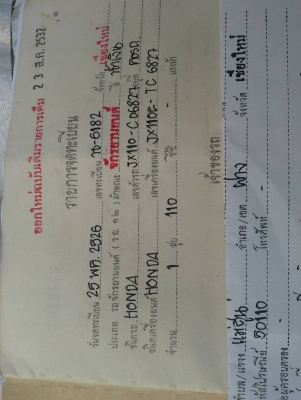 ออกใหม่ฉบับเดิมรายการเต็ม 23 ส.ค. 2532
รายการจดทะเบียน
วันจดทะเบียน 25 พค. 2526 เลขทะเบียน 6182 จังหวัด เชียงใหม่
ประเภท รถจักรยานยนต์ (รย ๑๒) ลักษณะ จักรยานยนต์ สี น้ำเงิน
ชื่อรถ HONDA เลขตัวรถ JX110-C06827 อยู่ที่ คอรถ
ชื่อเครื่องยนต์ HONDA เลขเครื่องยนต์ JX110E-TC 6827
จำนวน 1 สูบ 110 ซีซี - แรงม้า
เจ้าของรถ
ตำบล/แขวง อำเภอ/เขต ฝาง จังหวัด เชียงใหม่
50110 โทรศัพท์ -